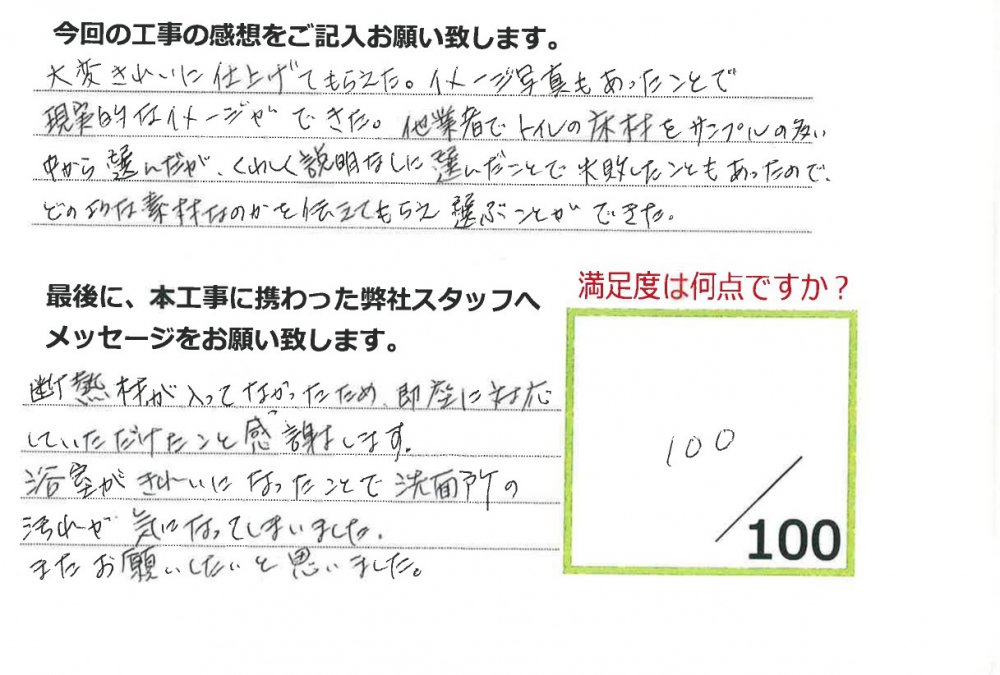 今回の工事の感想をご記入お願い致します。
大変きれいに仕上げてもらえた。イメージ写真もあったことで
現実的なイメージができた。他業者でトイレの床材をサンプルの多い
中から選んだが、くわしく説明なしに選んだことで失敗したこともあったので、
どのような素材なのかを伝えてもらえ選ぶことができた。
最後に、本工事に携わった弊社スタッフへ
メッセージをお願い致します。
満足度は何点ですか？
断熱材が入ってなかったため、即座に対応
していただけたこと感謝します。
浴室がきれいになったことで洗面所の
汚れが気になってしまいました。
またお願いしたいと思いました。
100
100